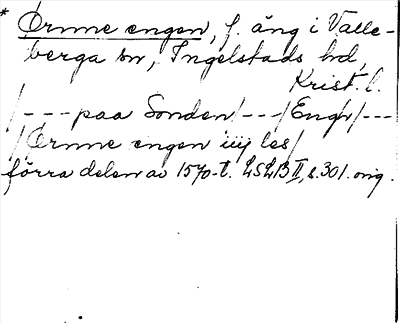 * Ormme engen, f. äng i Valle-
berga sn, Ingelstads hd,
Krist. l.
/---paa Sonden/---/Engh/---
/Ormme engen iiij les/
förra delen av 1570-t. LSLB II, s. 301. orig.